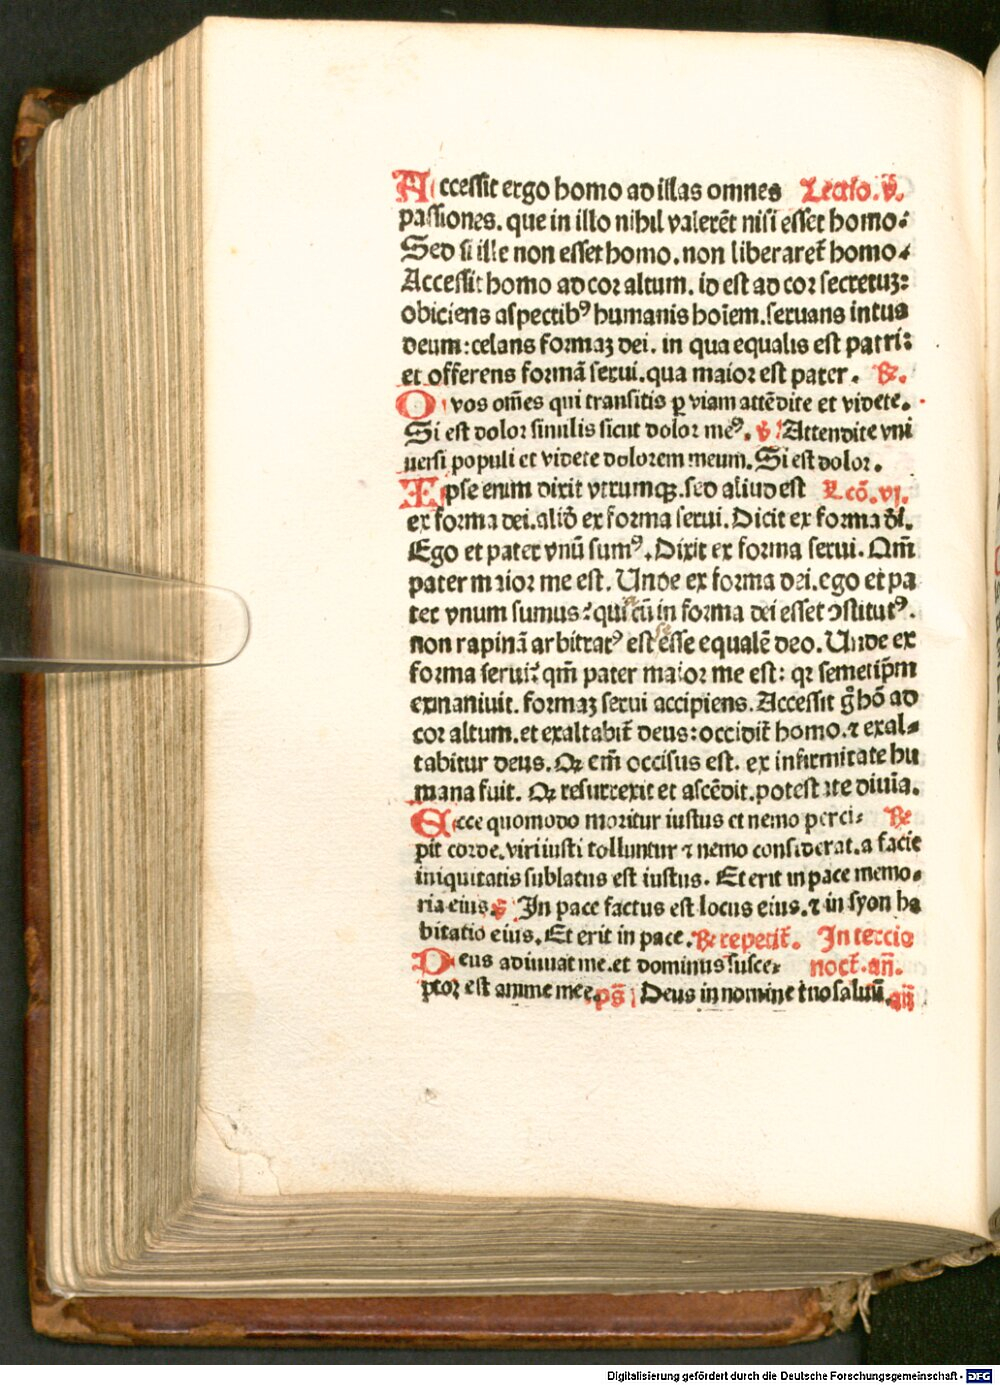 Accessit ergo homo ad illas omnes Lectio .v.
passiones. que in illo nihil valerēt nisi esset homo:
Sed si ille non esset homo. non liberaret̄ homo.
Accessit homo ad cor altum. id est ad cor secretuꝫ:
obiciens aspectibꝰ humanis hoīem. seruans intus
deum: celans formaꝫ dei. in qua equalis est patri:
et offerens formā serui. qua maior est pater. ℟.
O vos om̄es qui transitis ꝑ viam attēdite et videte.
Si est dolor similis sicut dolor meꝰ. ℣ Attendite vni
uersi populi et videte dolorem meum. Si est dolor.
Ipse enim dixit vtrumqꝫ. sed aliud est Lcō. vj.
ex forma dei. aliđ ex forma serui. Dicit ex forma đi.
Ego et pater vnū sumꝰ. Dixit ex forma serui. Qm̄
pater maior me est. Unde ex forma dei. ego et pa
ter vnum sumus: quia cū in forma dei esset ↄstitutꝰ.
non rapinā arbitratꝰ est se esse equalē deo. Unde ex
forma serui: qm̄ pater maior me est: qꝛ semetip̄m
exinaniuit. formaꝫ serui accipiens. Accessit gͦ hō ad
cor altum. et exaltabit̄ deus: occidit̄ homo. ⁊ exal-
tabitur deus. Qꝛ em̄ occisus est. ex infirmitate hu
mana fuit. Qꝛ resurrexit et ascēdit. potestate diuīa.
Ecce quomodo moritur iustus et nemo perci- ℟
pit corde. viri iusti tolluntur ⁊ nemo considerat. a facie
iniquitatis sublatus est iustus. Et erit in pace memo-
ria eius. ℣ In pace factus est locus eius. ⁊ in syon ha
bitatio eius. Et erit in pace. ℟ repetit̄. In tercio
Deus adiuuat me. et dominus susce- noct̄. an̄.
ptor est anime mee. ps̄ Deus in nomine tuo saluū. an̄
Digitalisierung gefördert durch die Deutsche Forschungsgemeinschaft - DFG